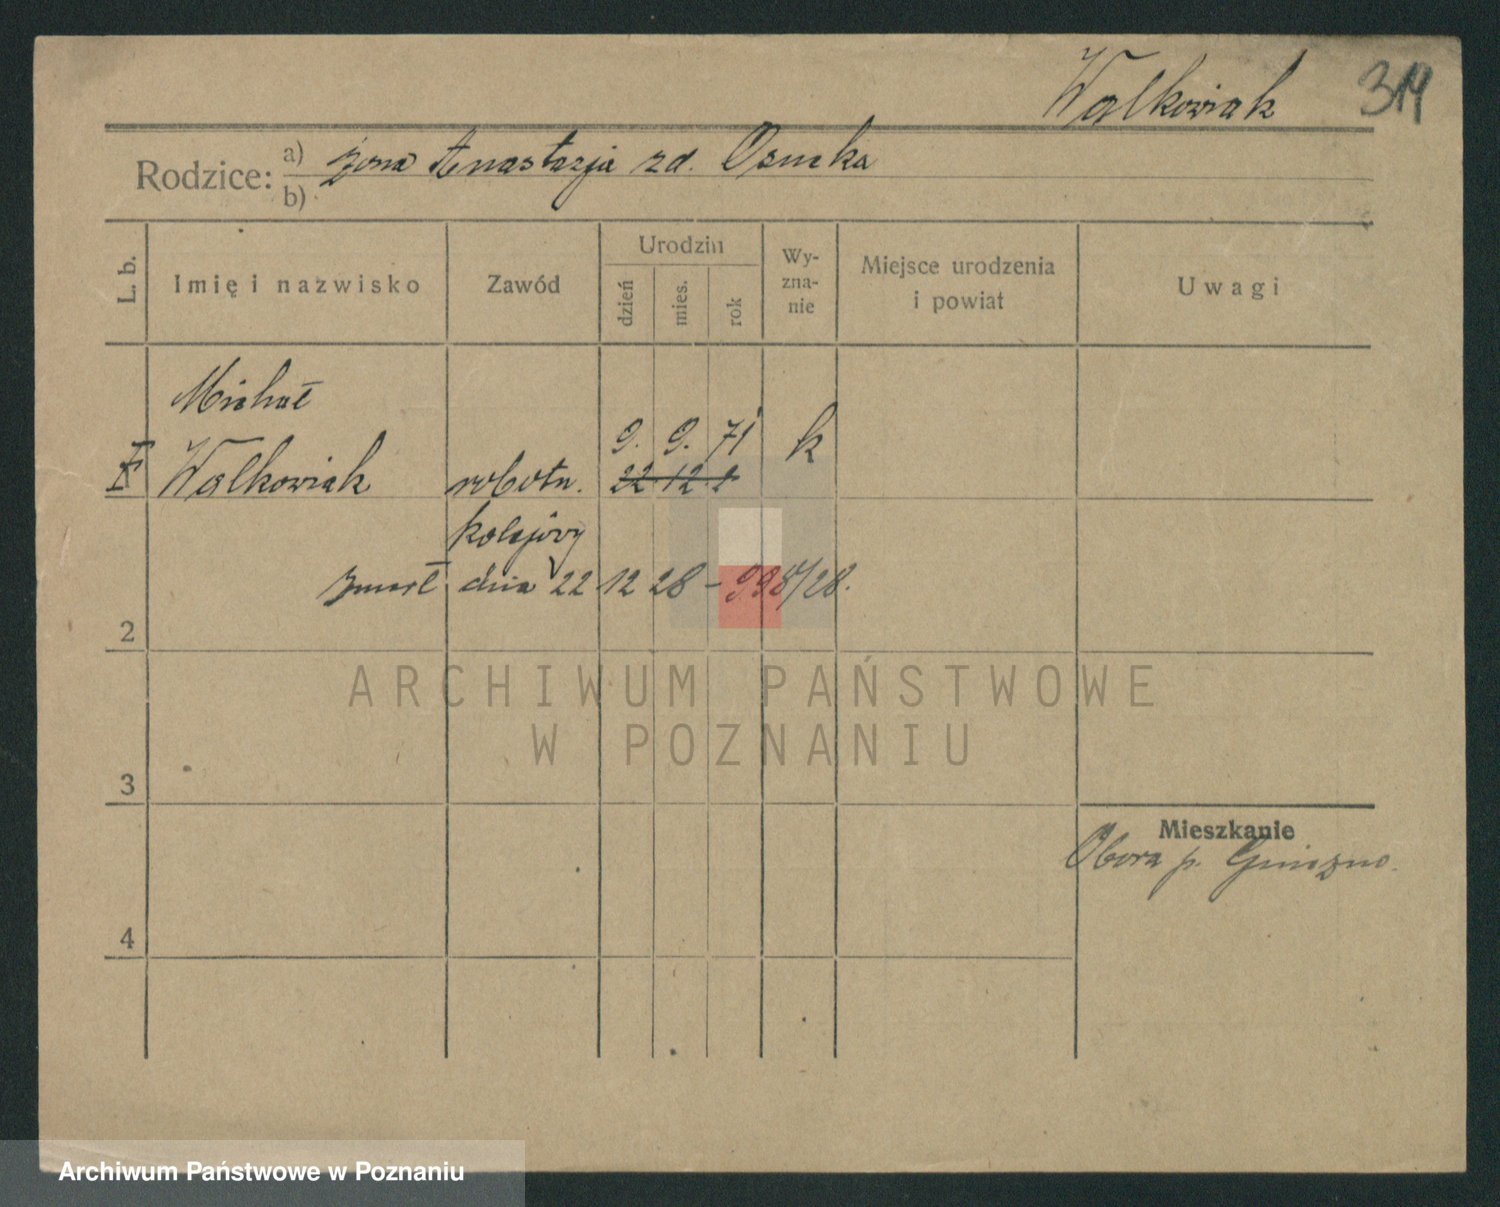 Walkowiak 314
Rodzice: a) żona Anastazja zd. Osucka
b)
L. b. Imię i nazwisko Zawód Urodzin dzień mies. rok Wy-zna-nie Miejsce urodzenia i powiat Uwagi
Michał
9. 9. 71 k
Walkowiak robotn. 22 12
kolejowy
zmarł dnia 22 12 28 – 998/28.
2
ARCHIWUM PAŃSTWOWE
W POZNANIU
3
Mieszkanie
Obora p. Gniezno.
4
Archiwum Państwowe w Poznaniu